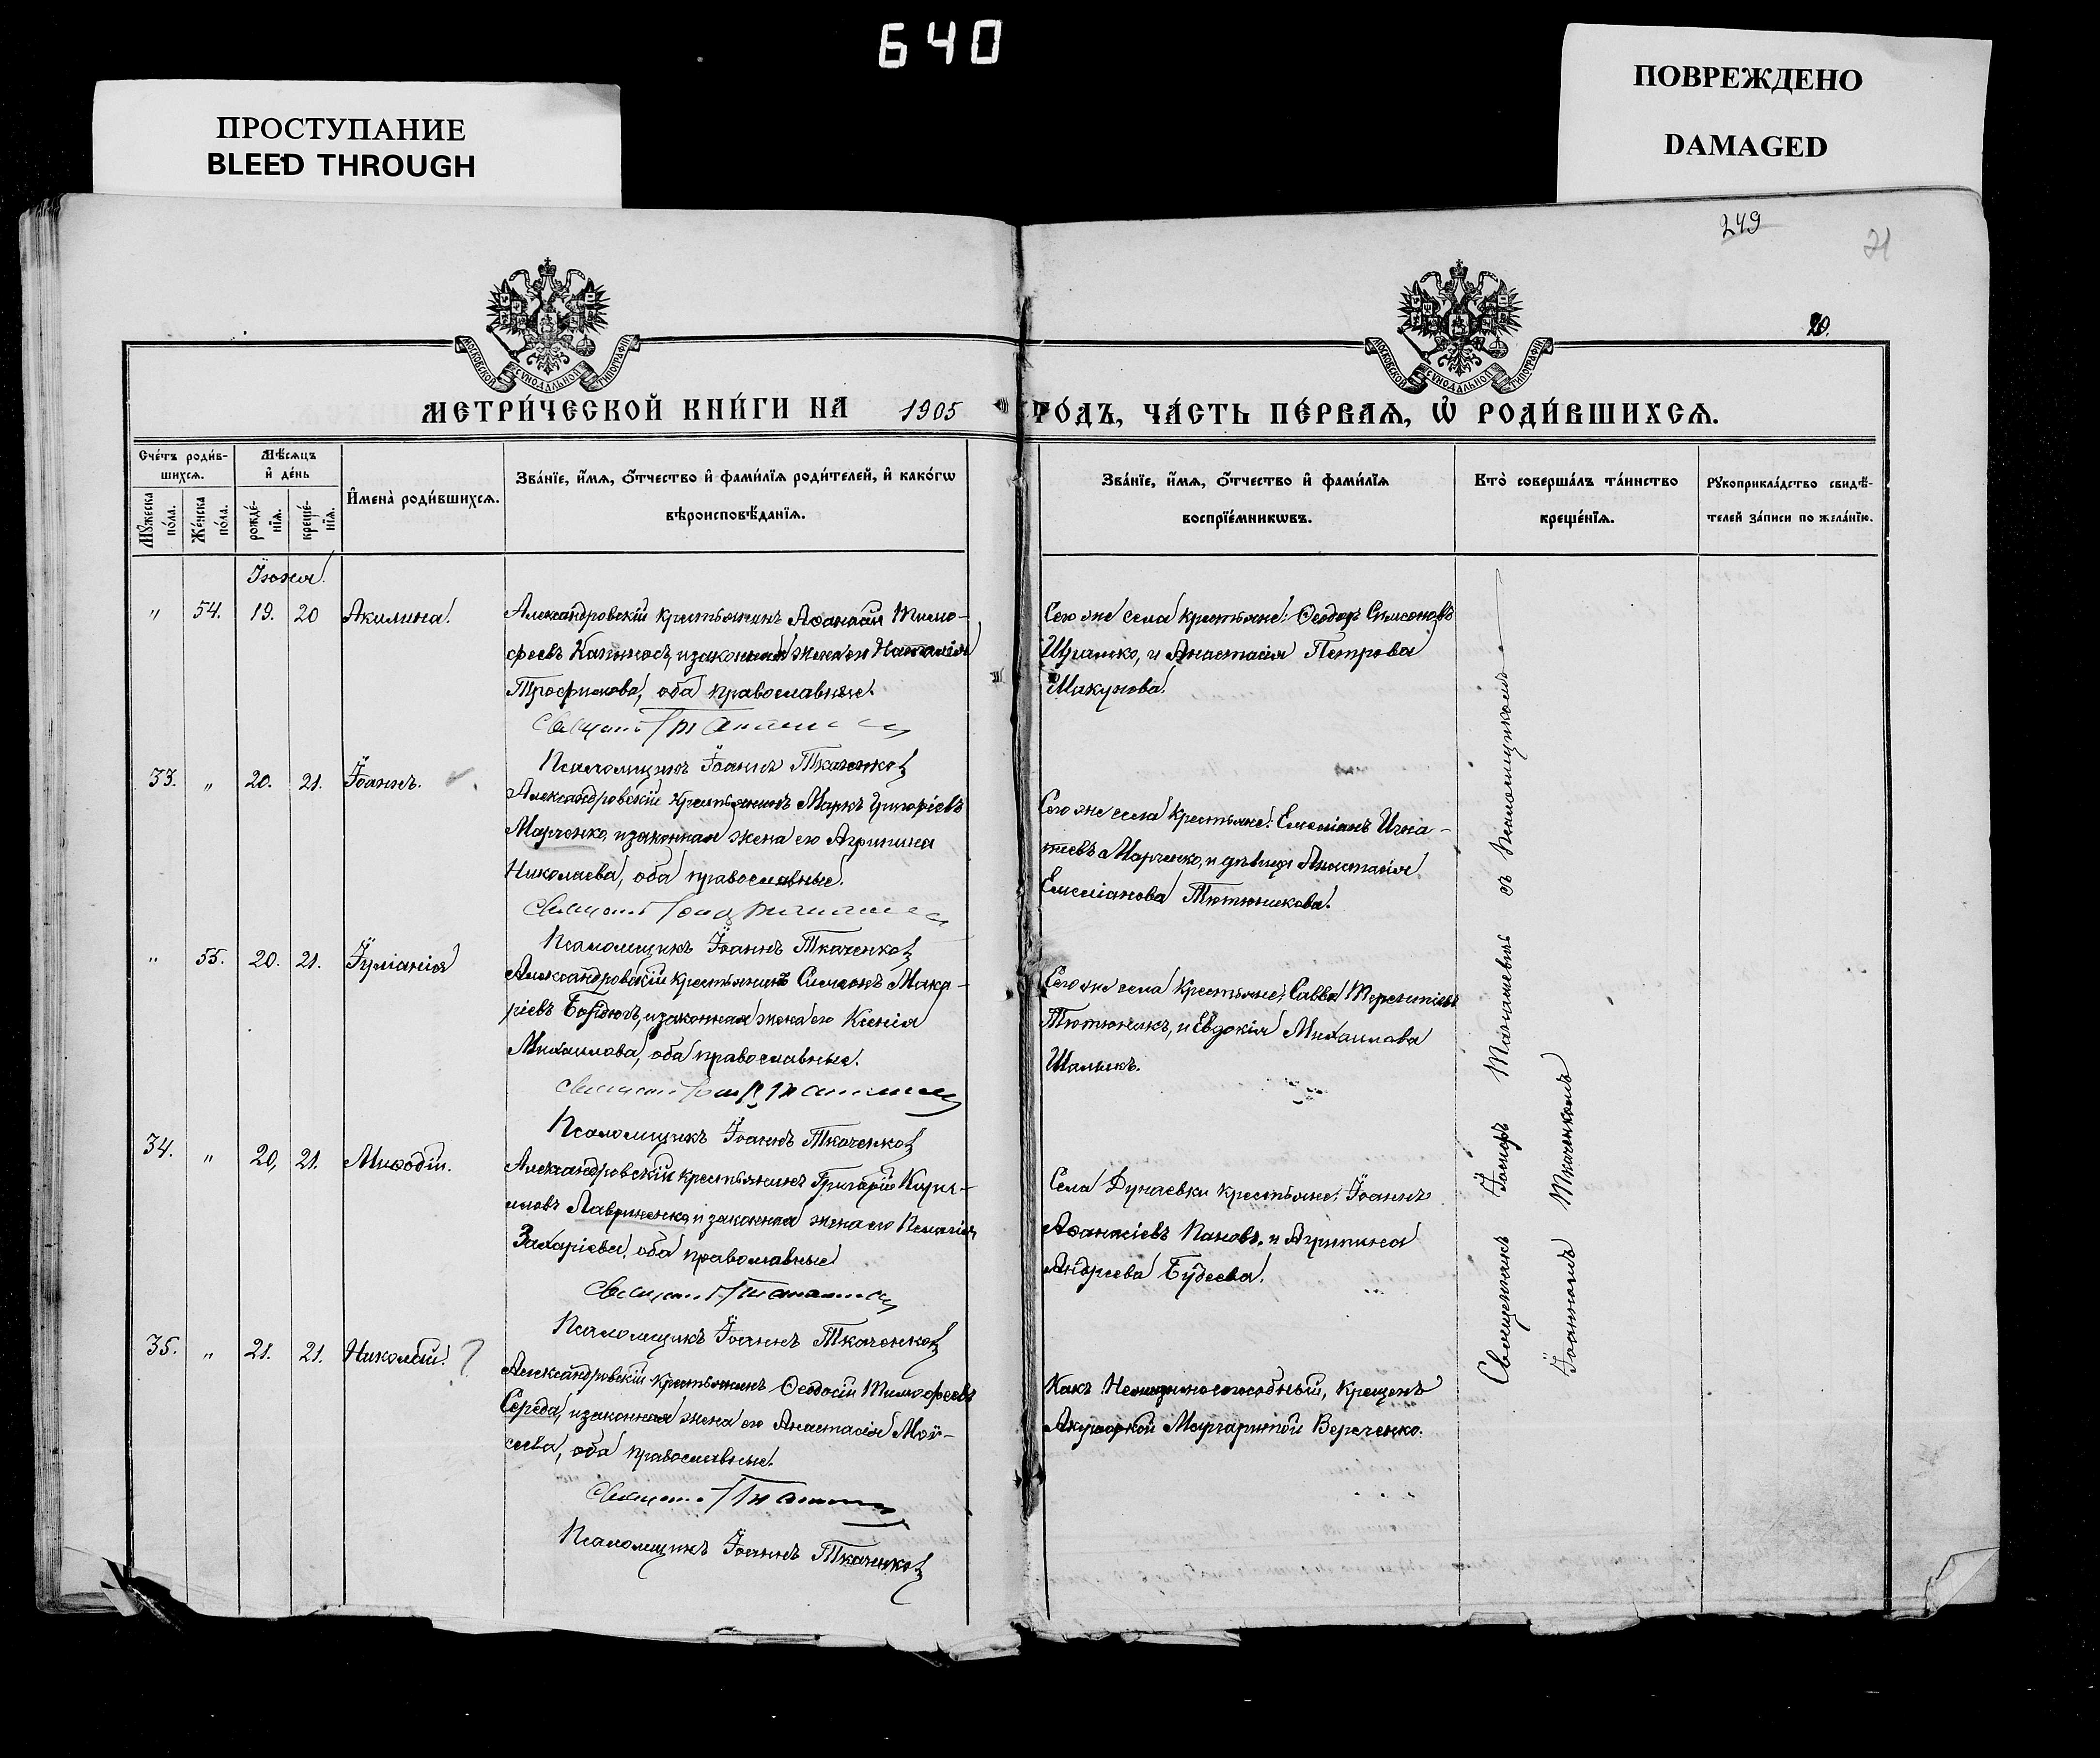 640
ПРОСТУПАНИЕ
BLEED THROUGH
ПОВРЕЖДЕНО
DAMAGED
249
21
20.
МОСКОВСКОЙ СѴНОДАЛЬНОЙ ТИПОГРАФІИ
МОСКОВСКОЙ СѴНОДАЛЬНОЙ ТИПОГРАФІИ
МЕТРИ́ЧЕСКОЙ КНИ́ГИ НА 1905 ГО́ДЪ, ЧА́СТЬ ПЕ́РВАѦ, Ѽ РОДИ́ВШИХСѦ.
Сче́тъ роди́в-
шихсѧ.
Мꙋ́жеска
по́ла.
Же́нска
по́ла.
Мѣ́сѧцъ
и҆ де́нь
рожде́-
нїѧ.
креще́-
нїѧ.
И҆мена̀ роди́вшихсѧ.
Зва́нїе, и҆́мѧ, ѻ҆́тчество и҆ фами́лїѧ роди́телей, и҆ како́гѡ
вѣроисповѣ́данїѧ.
Зва́нїе, и҆́мѧ, ѻ҆́тчество и҆ фами́лїѧ
воспрїе́мникѡвъ.
Кто̀ соверша́лъ та́инство
креще́нїѧ.
Рꙋкоприкла́дство свидѣ́-
телей за́писи по жела́нїю.
Іюня.
" 54. 19. 20 Акилина.
Александровскій крестьянинъ Аѳанасій Тимо-
феевъ и законная жена его Наталія
Трофимова, оба православные.
Псаломщикъ Іоаннъ Ткаченко
Сего же села крестьяне: Ѳеодоръ Симеоновъ
и Анастасія Петрова
Шакунова.
33. " 20. 21. Іоаннъ.
Александровскій крестьянинъ Маркъ Григоріевъ
Марченко, и законная жена его Агрипина
Николаева, оба православные.
Псаломщикъ Іоаннъ Ткаченко
Сего же села крестьяне: Емеліанъ Игна-
тіевъ Марченко, и дѣвица Анастасія
Емеліанова Тютюникова.
" 55. 20. 21. Іуліанія
Александровскій крестьянинъ Симеонъ Мака-
ріевъ и законная жена его Ксенія
Михаилова, оба православные.
Псаломщикъ Іоаннъ Ткаченко
Сего же села крестьяне: Савва Терентіевъ
Тютюникъ, и Евдокія Михаилова
Шалыкъ.
34. " 20, 21. Меѳодій.
Александровскій крестьянинъ Григорій Кири-
ловъ Лавриненко, и законная жена его Пелагія
Захаріева, оба православные
Псаломщикъ Іоаннъ Ткаченко
Села Дунаевки крестьяне: Іоаннъ
Аѳанасіевъ Пановъ, и Агрипина
Андреева Будеева.
35. " 21. 21. Николай. ?
Александровскій крестьянинъ Ѳеодосій Тимофеевъ
Середа, и законная жена его Анастасія Мой-
сеева, оба православные.
Псаломщикъ Іоаннъ Ткаченко
Какъ крещенъ
Акушоркой Маргаритой Верченко.
Священникъ Іосифъ съ псаломщикомъ
Іоанномъ Ткаченкомъ